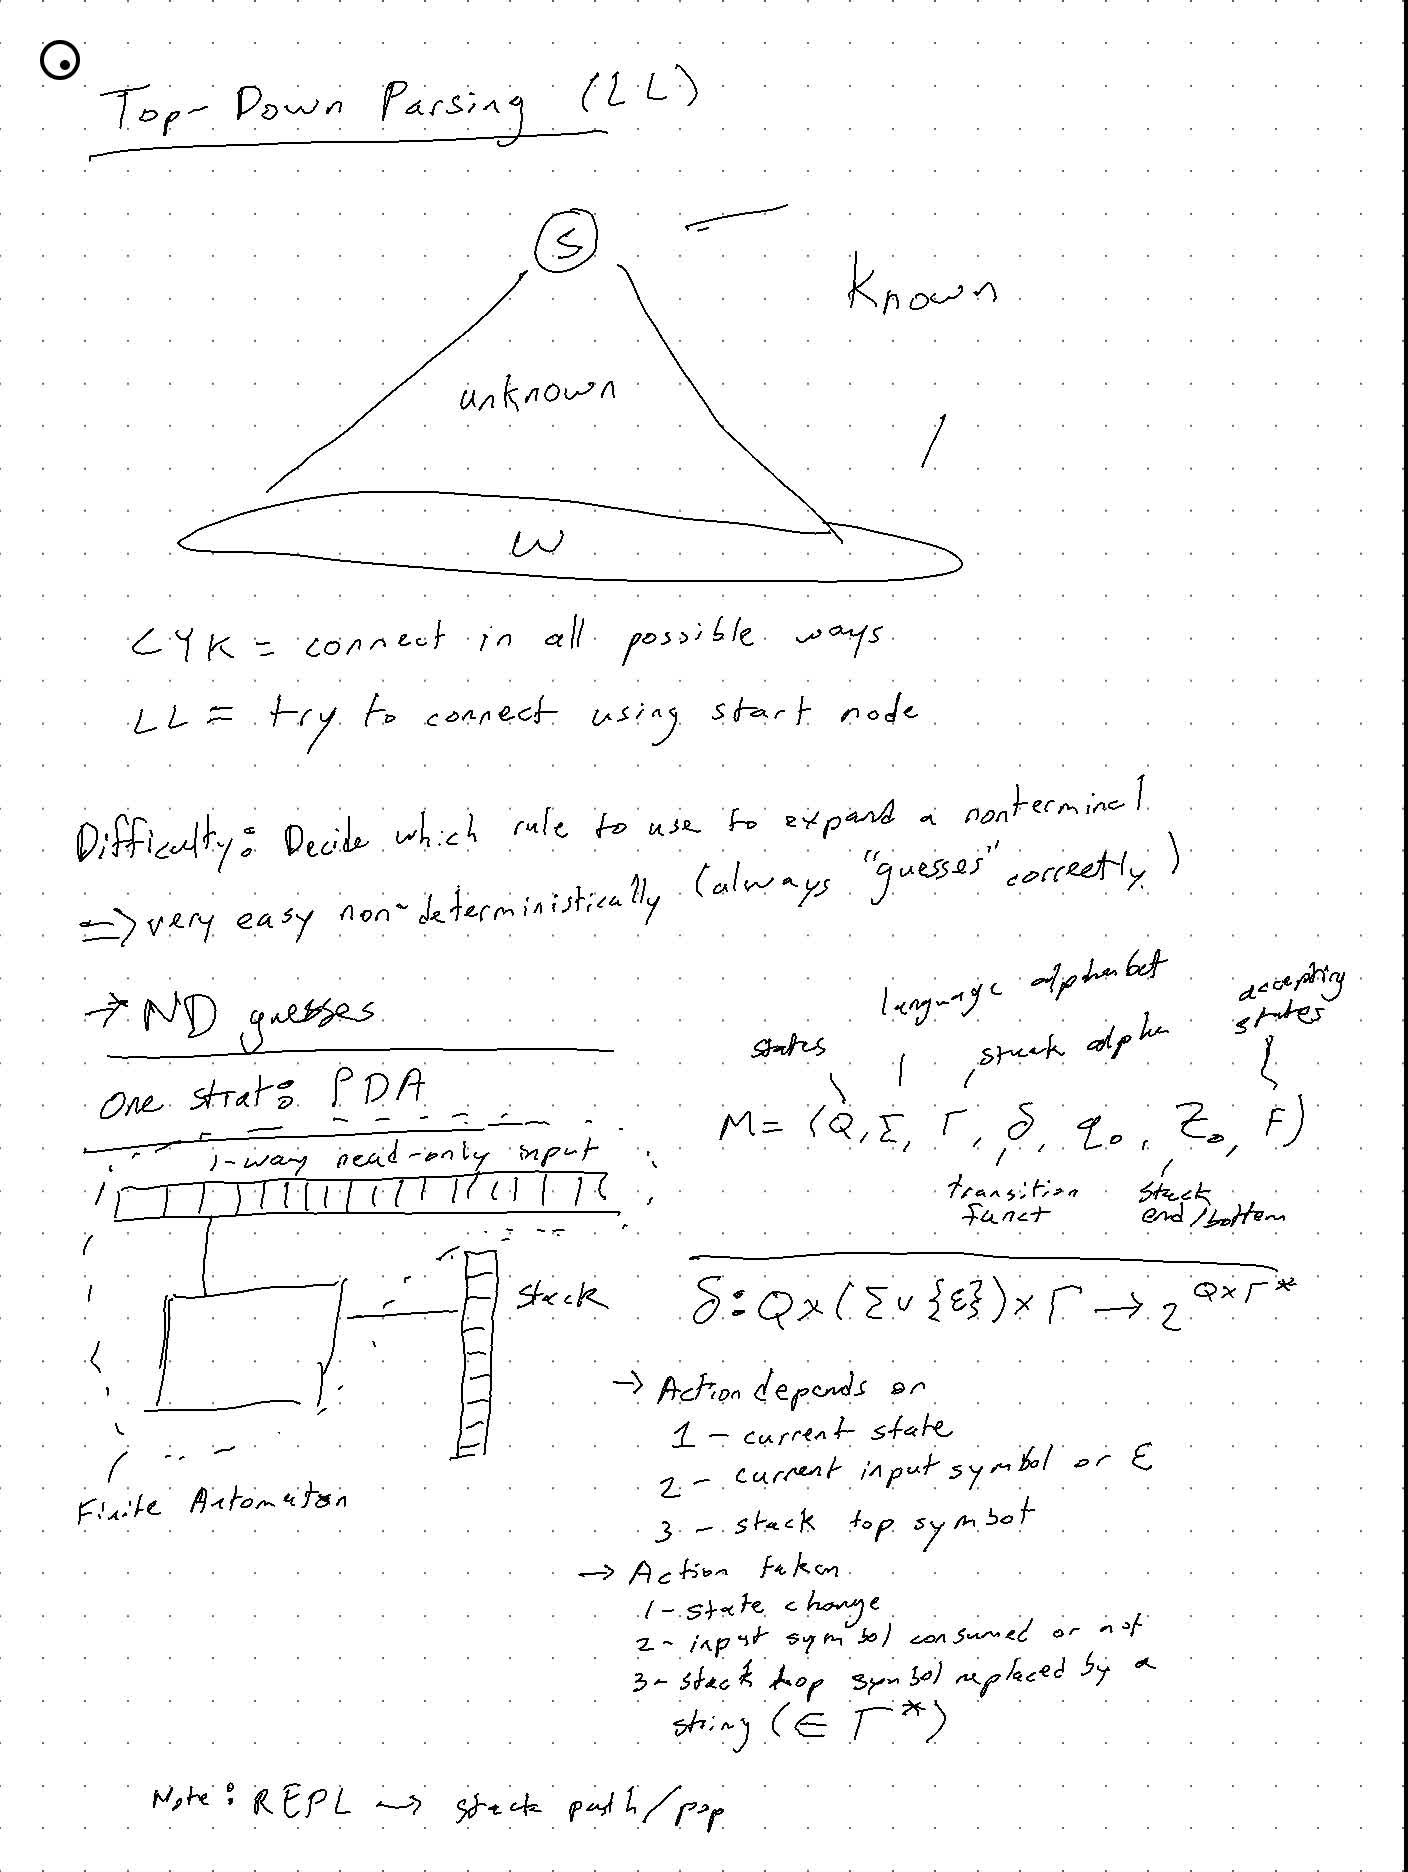 Top-Down Parsing (LL)
S
Known
unknown
W
CYK = connect in all possible ways
LL = try to connect using start node
Difficulty: Decide which rule to use to expand a nonterminal
=> very easy non-deterministically (always "guesses" correctly)
→ ND guesses
One strat: PDA
1-way read-only input
Stack
Finite Automaton
language alphabet
accepting states
states
stack alpha
M = (Q, Σ, Γ, δ, q₀, Z₀, F)
transition funct
stack end/bottom
δ: Q × (Σ ∪ {ε}) × Γ → 2^(Q×Γ*)
→ Action depends on
1 - current state
2 - current input symbol or ε
3 - stack top symbol
→ Action taken
1 - state change
2 - input symbol consumed or not
3 - stack top symbol replaced by a
string (∈ Γ*)
Note: REPL → stack push/pop